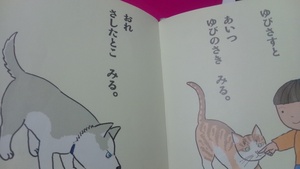 ゆびさすと
あいつ
ゆびのさき みる。
おれ
さしたとこ みる。